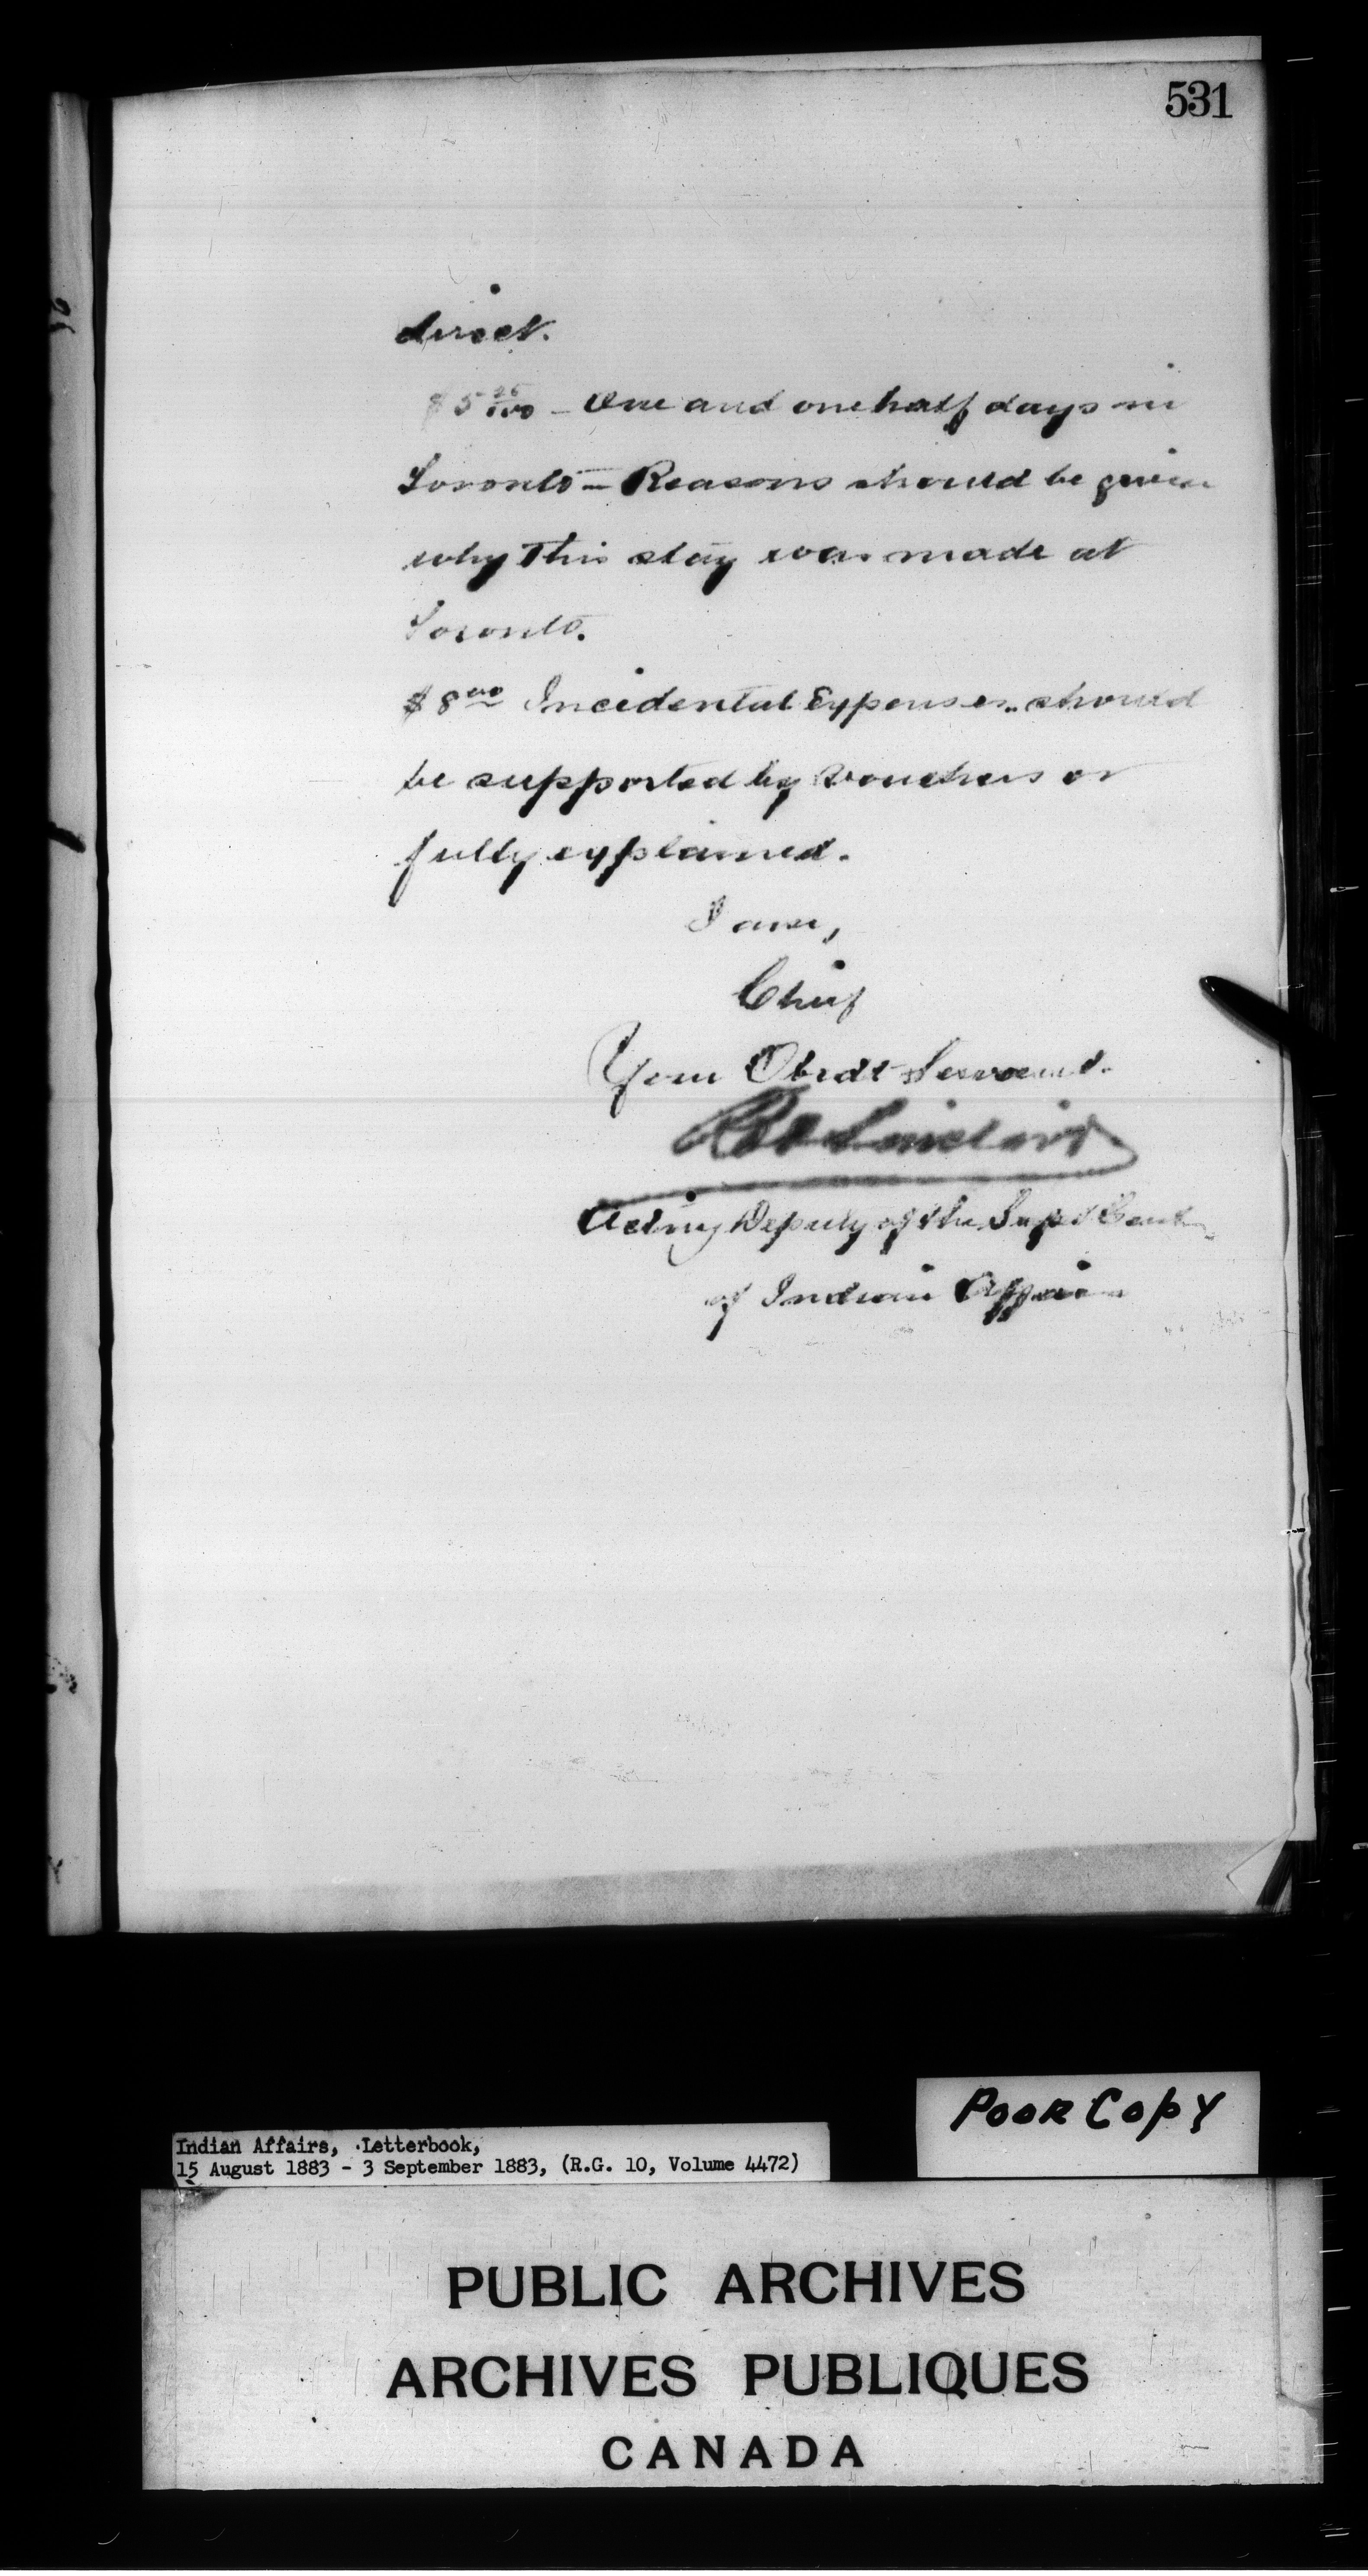 531
direct.
$5 25/100 - One and one half days in
Toronto - Reasons should be given
why this stay was made at
Toronto.
$8 00 Incidental Expenses should
be supported by vouchers or
fully explained.
I am,
Chief
Your Obedt Servant.
Sinclair
Acting Deputy of the Supt Genl
of Indian Affairs
Poor Copy
Indian Affairs, Letterbook,
15 August 1883 - 3 September 1883, (R.G. 10, Volume 4472)
PUBLIC ARCHIVES
ARCHIVES PUBLIQUES
CANADA